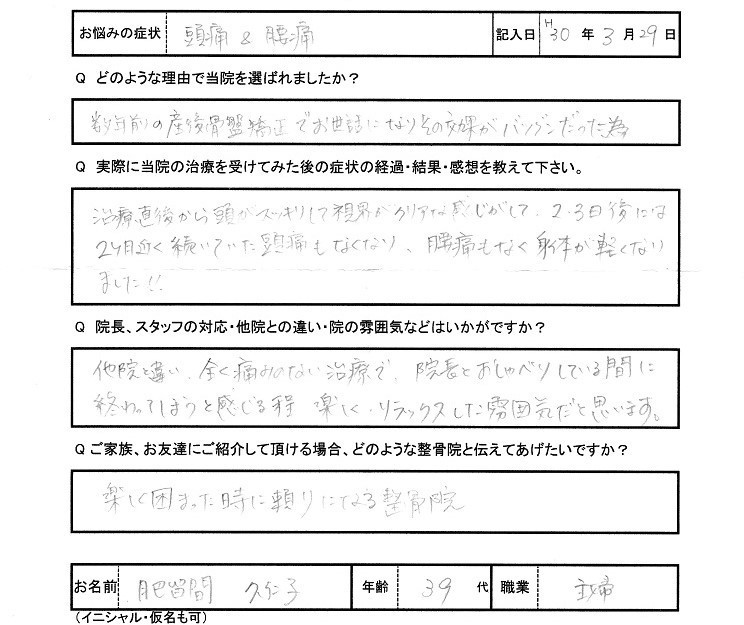 お悩みの症状 頭痛 & 腰痛 記入日 H30 年 3 月 29 日
Q どのような理由で当院を選ばれましたか？
数年前の産後骨盤矯正でお世話になりその効果がバツグンだった為
Q 実際に当院の治療を受けてみた後の症状の経過・結果・感想を教えて下さい。
治療直後から頭がスッキリして視界がクリアな感じがして、2・3日後には
2ヶ月近く続いていた頭痛もなくなり、腰痛もなく身体が軽くなり
ました!!
Q 院長、スタッフの対応・他院との違い・院の雰囲気などはいかがですか？
他院と違い、全く痛みのない治療で、院長とおしゃべりしている間に
終わってしまうと感じる程 楽しく、リラックスした雰囲気だと思います。
Q ご家族、お友達にご紹介して頂ける場合、どのような整骨院と伝えてあげたいですか？
楽しく困まった時に頼りになる整骨院
お名前 肥留間 久仁子 年齢 39 代 職業 主婦
（イニシャル・仮名も可）